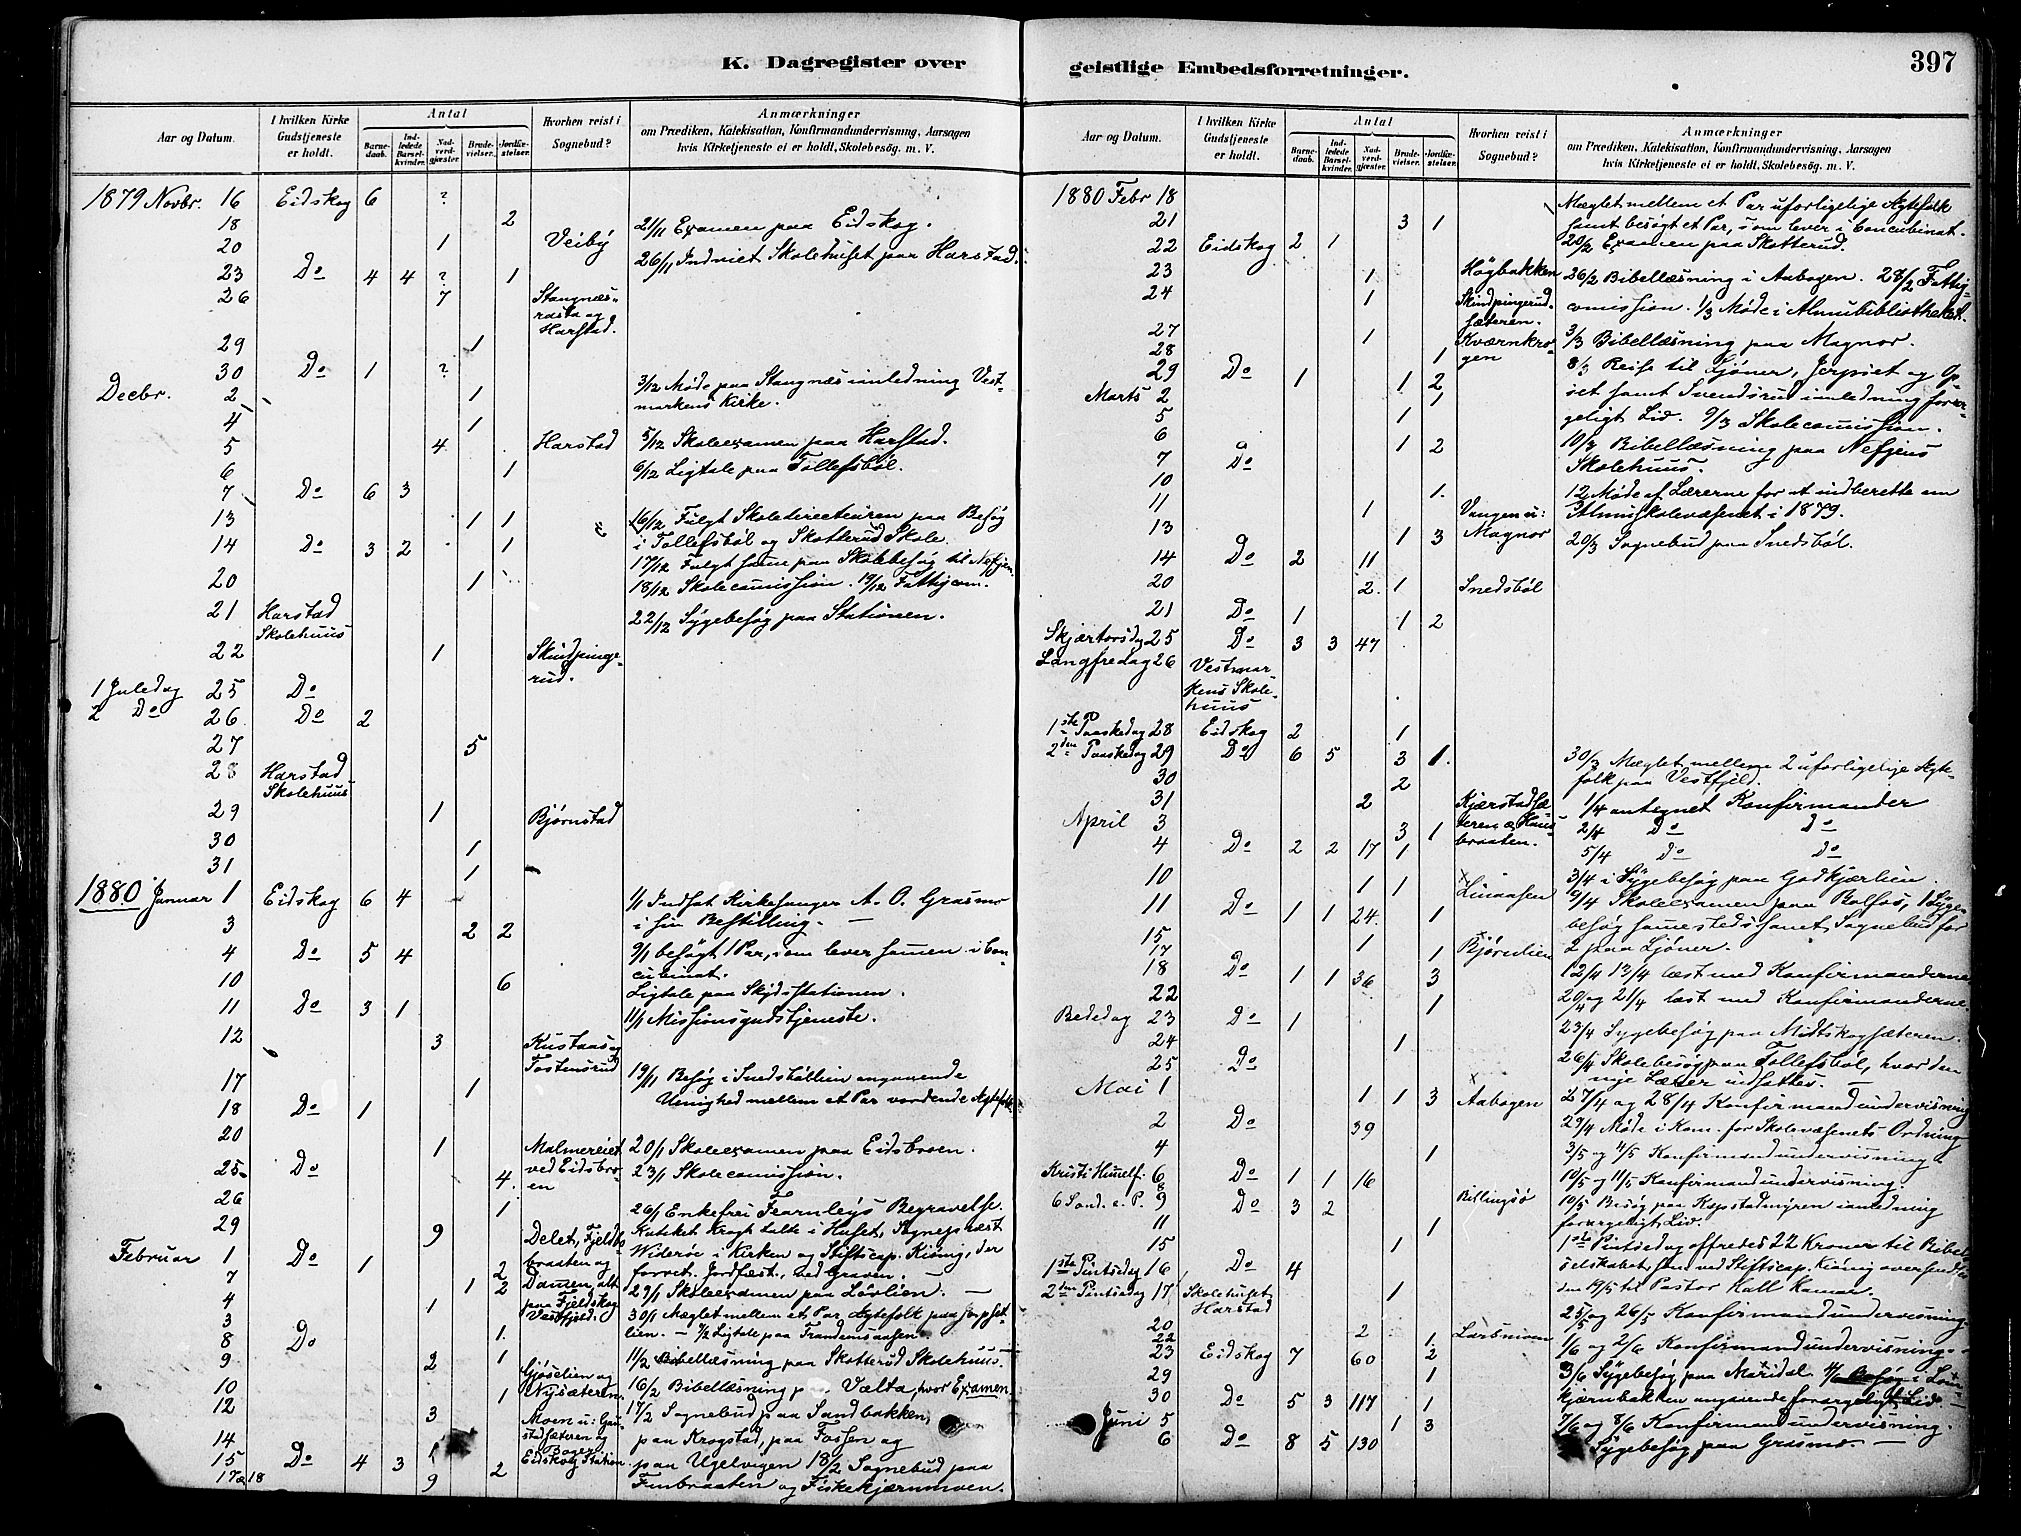 K. Dagregister over
geistlige Embedsforretninger.
397
Aar og Datum.
I hvilken Kirke Gudstjeneste er holdt.
Antal
Barnedaab.
Indledede Barselkvinder.
Nadverdgjæster.
Brudevielser.
Jordfæstelser.
Hvorhen reist i Sognebud?
Anmærkninger
om Prædiken, Katekisation, Konfirmandundervisning, Aarsagen
hvis Kirketjeneste ei er holdt, Skolebesög. m. V.
1879 Novbr. 16 Eidskog 6 ?
18 2 21/11 Examen paa Eidskog.
20 1 Veiby 26/11 Indviet Skolehuset paa Harstad.
23 Do 4 4 ? 1
26 7 Stangnæs-
rasta og
Harstad.
29 1
30 Do 1 ?
Decbr. 2 1 3/12 Møde paa Stangnæs i anledning Vest-
markens Kirke.
4 1
5 4 Harstad 5/12 Skoleexamen paa Harstad.
6 1 6/12 Ligtale paa Tollefsböl.
7 Do 6 3
13 1 1 16/12 Fulgt Skoledirecteuren paa Besög
i Tollefsböl og Skotterud Skole.
14 Do 3 2 1 17/12 Fulgt samme paa Skolebesög til Nefjen.
20 1 18/12 Skolecomission. 19/12 Fattigcom.
21 Harstad
Skolehuus
22/12 Sygebesøg paa Stationen.
22 1 Skindpinge-
rud.
1 Juledag 25 Do
2 Do 26 Do 2
27 5
28 Harstad
Skolehuus
29 1 Bjørnstad
30 1
31 1
1880 Januar 1 Eidskog 6 4 1/1 Indsat Kirkesanger A. O. Grasmo
i sin Bestilling. —
3 2 2
4 Do 5 4 9/1 besögt 1 Par, som lever sammen i Con-
cubinat.
10 6 Ligtale paa Skydsstationen.
11 Do 3 1 11/1 Missionsgudstjeneste.
12 3 Kustaas og
Tostensrud
17 1 19/11 Besög i Snedsböllien angaaende
Uenighed mellem et Par vordende Ægtefolk
18 Do 1
20 1 Malmereiet
ved Eidsbro-
en
20/1 Skoleexamen paa Eidsbroen.
25 Do 4. 23/1 Skolecomission.
26 1 26/1 Enkefru Fearnleys Begravelse.
29 9 Kateket Krogh talte i Huset, Sognepræst
Februar 1 Do 1 2 Widerøe i Kirken og Stiftscap. Kiönig, der
forret. Jordfæst., ved Graven.
7 1 2 29/1 Skoleexamen paa Lövlien. —
4 1 30/1 Mæglet mellem et Par Ægtefolk paa Jerpset-
3 1. lien. — 7/2 Ligtale paa Frandemsaasen
8 Do 1
9 2 Gjøselien og
Nysæteren.
11/2 Bibellæsning paa Skotterud Skolehuus.
10 1 16/2 Bibellæsning Vælta, hvor Examen
12 3 17/2 Sognebud paa Sandbakken,
14 paa Krogstad, paa Fossen og
15 Do 4 3 2 Eidskog Station paa Ugelvigen 18/2 Sognebud paa
17 & 18 9 Finbraaten og Fiskekjærnmoen.
Aar og Datum.
I hvilken Kirke Gudstjeneste er holdt.
Antal
Barnedaab.
Indledede Barselkvinder.
Nadverdgjæster.
Brudevielser.
Jordfæstelser.
Hvorhen reist i Sognebud?
Anmærkninger
om Prædiken, Katekisation, Konfirmandundervisning, Aarsagen
hvis Kirketjeneste ei er holdt, Skolebesög. m. V.
1880 Febr 18 Mæglet mellem et Par uforligelige Ægtefolk
21 3 1 samt besögt et Par, som lever i Concubinat.
22 Eidskog 2 1 20/2 Examen paa Skotterud.
23 1 Högbakken 26/2 Bibellæsning i Aabogen. 28/2 Fattig-
24 1 Skindpingerud-
sæteren.
comission. 1/3 Møde i Almuebibliotheket.
27 1 Kværnkro-
gen
3/3 Bibellæsning paa Magnor.
28 1
29 Do 1 1 2 8/3 Reise til Ljöner, Jerpset og Op-
Marts 2 1 set samt Svendsrud i anledning forar-
5 1 geligt Lid. 9/3 Skolecomission.
6 1 2 10/3 Bibellæsning paa Nefjens
7 Do Skolehuus.
10 1. 12 Møde af Lærerne for at indberette om
11 1 Vangen u:
Magnor
Almuskolevæsenet i 1879.
13 1 3 20/3 Sognebud paa Snedsböl.
14 Do 2 11
20 2 1 Snedsböl
21 Do 1 1 2
Skjærtorsdag 25 Do 3 3 47
Langfredag 26 Vestmar-
kens Skole-
huus
1ste Paaskedag 28 Eidskog 2 1
2den Paaskedag 29 Do 6 5 3 1.
30 2 30/3 Mæglet mellem 2 uforligelige Ægte-
folk paa Vestfjeld.
31 2 Kjærstadsæ-
1/4 antegnet Konfirmander
April 3 3 1 2/4 Do Do
4 Do 2 2 17 1 braaten. 5/4 Do Do
10 1 1 Linaasen 3/4 i Sygebesøg paa Godkjærlien.
11 Do 1 1 24 1 9/4 Skoleexamen paa Bolfos, 1 Syge-
besøg sammesteds samt Sognebud for
15 1 Bjørnlien 2 paa Ljöner.
17 1
18 Do 1 1 36 3 12/4 13/4 læst med Konfirmanderne
22 1 20/4 og 21/4 læst med Konfirmanderne.
Bededag 23 Do 1 23/4 Sygebesøg paa Midtskogsæteren.
24 1
25 Do 26/4 Skolebesøg paa Tollefsböl, hvor den
nye Lærer indsattes. —
Mai 1 1 1 3 Aabogen 27/4 og 28/4 Konfirmandundervisning
2 Do 39 29/4 Møde i Kom. for Skolevæsenets Ordning
4 1 3/5 og 4/5 Konfirmandundervisning.
Kristi Himelf. 6 Do 1 1 16 10/5 og 11/5 Konfirmandundervisning.
8
6 Sönd. e. P. 9 Do 3 2 Billingsö 10/5 Besög paa Kopstadmyren i anledning
11 1 forargeligt Lid.
15 1 1ste Pintsedag offredes 22 Kroner til Bibel-
1ste Pintsedag 16 Do 4 selskabet som ved Stiftscap. Kiönig oversendtes
2den Pintsedag 17 Skolehuset
Harstad
1 den 19/5 til Pastor Hall Hamar.
20 2 Larsmoen 25/5 og 26/5 Konfirmandundervisning.
22 1.
23 Eidskog 7 60 2 1/6 og 2/6 Konfirmandundervisning.
29 1 3/6 Sygebesøg paa Maridal. 4/6 Besøg i
30 Do 5 3 117 1 kjærnbakken angaaende forargeligt Lid. —
Juni 5 1 3 7/6 og 8/6 Konfirmandundervisning.
6 Do 8 5 130 Sygebesøg paa Grasmo. —